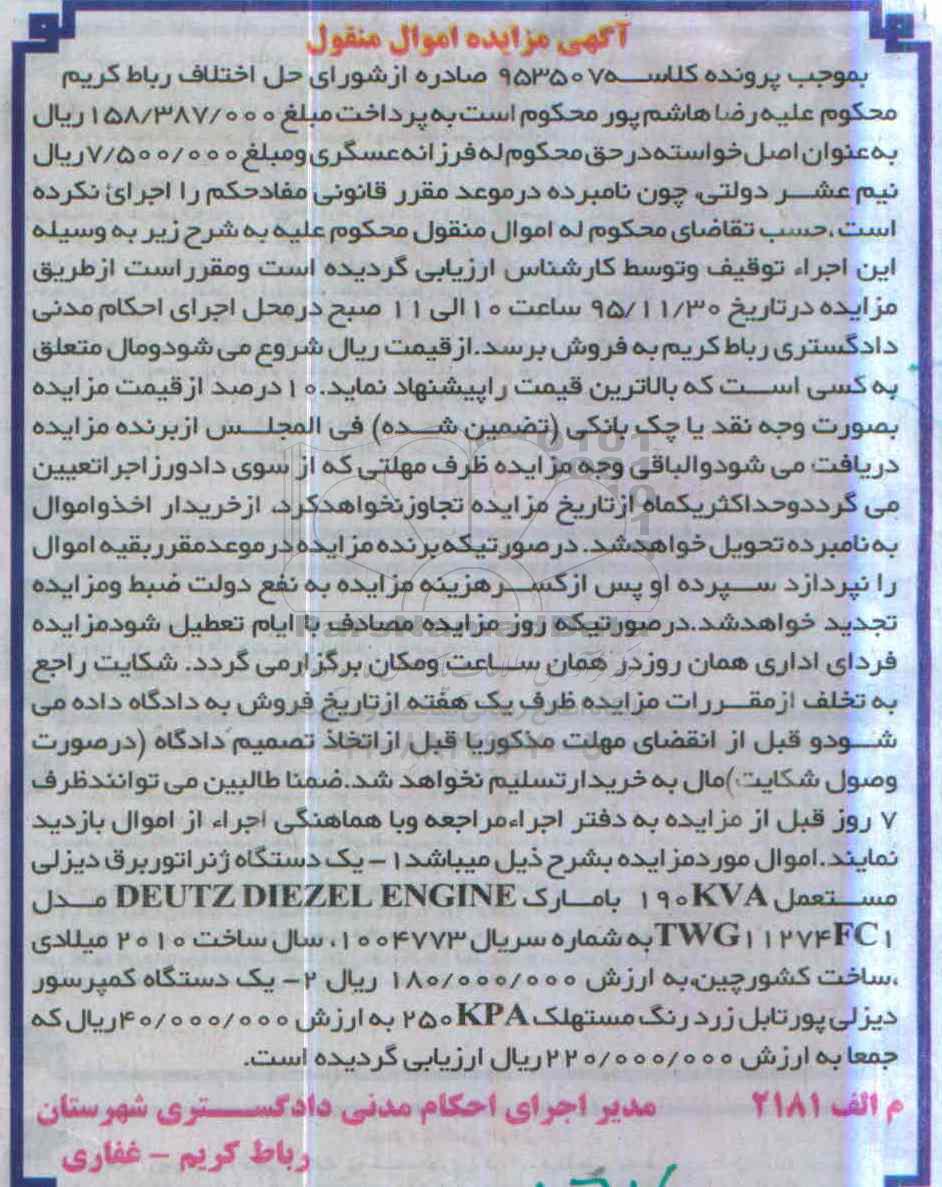 آگهی مزایده اموال منقول
بموجب پرونده کلاسه ۹۵۳۵۰۷ صادره ازشورای حل اختلاف رباط کریم
محکوم علیه رضا هاشم پور محکوم است به پرداخت مبلغ ۱۵۸/۳۸۷/۰۰۰ ریال
به عنوان اصل خواسته درحق محکوم له فرزانه عسگری ومبلغ ۷/۵۰۰/۰۰۰ ریال
نیم عشر دولتی، چون نامبرده درموعد مقرر قانونی مفادحکم را اجرائ نکرده
است،حسب تقاضای محکوم له اموال منقول محکوم علیه به شرح زیر به وسیله
این اجراء توقیف وتوسط کارشناس ارزیابی گردیده است ومقرراست ازطریق
مزایده درتاریخ ۹۵/۱۱/۳۰ ساعت ۱۰ الی ۱۱ صبح درمحل اجرای احکام مدنی
دادگستری رباط کریم به فروش برسد.ازقیمت ریال شروع می شودومال متعلق
به کسی است که بالاترین قیمت راپیشنهاد نماید.۱۰ درصد ازقیمت مزایده
بصورت وجه نقد یا چک بانکی (تضمین شده) فی المجلس ازبرنده مزایده
دریافت می شودوالباقی وجه مزایده ظرف مهلتی که از سوی دادورزاجراتعیین
می گرددوحداکثریکماه ازتاریخ مزایده تجاوزنخواهدکرد، ازخریدار اخذواموال
به نامبرده تحویل خواهدشد. درصورتیکه برنده مزایده درموعدمقرربقیه اموال
را نپردازد سپرده او پس ازکسرهزینه مزایده به نفع دولت ضبط ومزایده
تجدید خواهدشد.درصورتیکه روز مزایده مصادف با ایام تعطیل شودمزایده
فردای اداری همان روزدر همان ساعت ومکان برگزارمی گردد. شکایت راجع
به تخلف ازمقررات مزایده ظرف یک هفته ازتاریخ فروش به دادگاه داده می
شودو قبل از انقضای مهلت مذکوریا قبل ازاتخاذ تصمیم دادگاه (درصورت
وصول شکایت)مال به خریدارتسلیم نخواهد شد.ضمنا طالبین می توانندظرف
۷ روز قبل از مزایده به دفتر اجراءمراجعه وبا هماهنگی اجراء از اموال بازدید
نمایند.اموال موردمزایده بشرح ذیل میباشد۱- یک دستگاه ژنراتوربرق دیزلی
مستعمل ۱۹۰KVA بامارک DEUTZ DIEZEL ENGINE مدل
TWG۱۱۲۷۴FC۱ به شماره سریال ۱۰۰۴۷۷۳، سال ساخت ۲۰۱۰ میلادی
،ساخت کشورچین،به ارزش ۱۸۰/۰۰۰/۰۰۰ ریال ۲- یک دستگاه کمپرسور
دیزلی پورتابل زرد رنگ مستهلک ۲۵۰KPA به ارزش ۴۰/۰۰۰/۰۰۰ریال که
جمعا به ارزش ۲۲۰/۰۰۰/۰۰۰ریال ارزیابی گردیده است.
م الف ۲۱۸۱ مدیر اجرای احکام مدنی دادگستری شهرستان
رباط کریم - غفاری